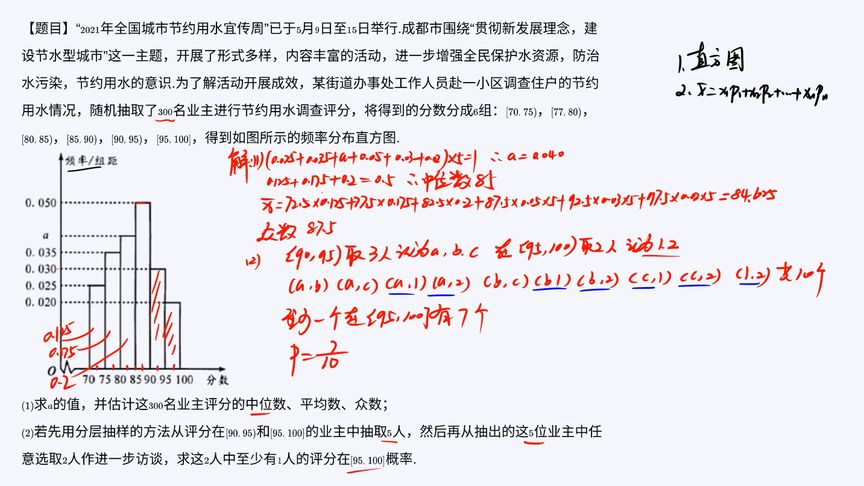 【题目】“2021年全国城市节约用水宜传周”已于5月9日至15日举行.成都市围绕“贯彻新发展理念，建
设节水型城市”这一主题，开展了形式多样，内容丰富的活动，进一步增强全民保护水资源，防治
水污染，节约用水的意识.为了解活动开展成效，某街道办事处工作人员赴一小区调查住户的节约
用水情况，随机抽取了300名业主进行节约用水调查评分，将得到的分数分成6组：[70.75)，[77.80)，
[80.85)，[85.90)，[90.95)，[95.100]，得到如图所示的频率分布直方图.
1.直方图
2. x̄=x₁p₁+x₂p₂+…+xₙpₙ
解:(1)(0.025+0.035+a+0.05+0.03+0.02)×5=1 ∴a=0.040
0.125+0.175+0.2=0.5 ∴中位数85
x̄=72.5×0.125+77.5×0.175+82.5×0.2+87.5×0.05×5+92.5×0.03×5+97.5×0.02×5=84.625
众数 87.5
(2) [90,95)取3人记为a,b,c 在[95,100)取2人记为1.2
(a,b)(a,c)(a,1)(a,2)(b,c)(b,1)(b,2)(c,1)(c,2)(1,2)共10个
至少一个在[95,100]有7个
P=7/10
频率/组距
0.050
a
0.035
0.030
0.025
0.020
0.125
0.175
0.2
O 70 75 80 85 90 95 100 分数
(1)求a的值，并估计这300名业主评分的中位数、平均数、众数；
(2)若先用分层抽样的方法从评分在[90.95)和[95.100]的业主中抽取5人，然后再从抽出的这5位业主中任
意选取2人作进一步访谈，求这2人中至少有1人的评分在[95.100]概率.